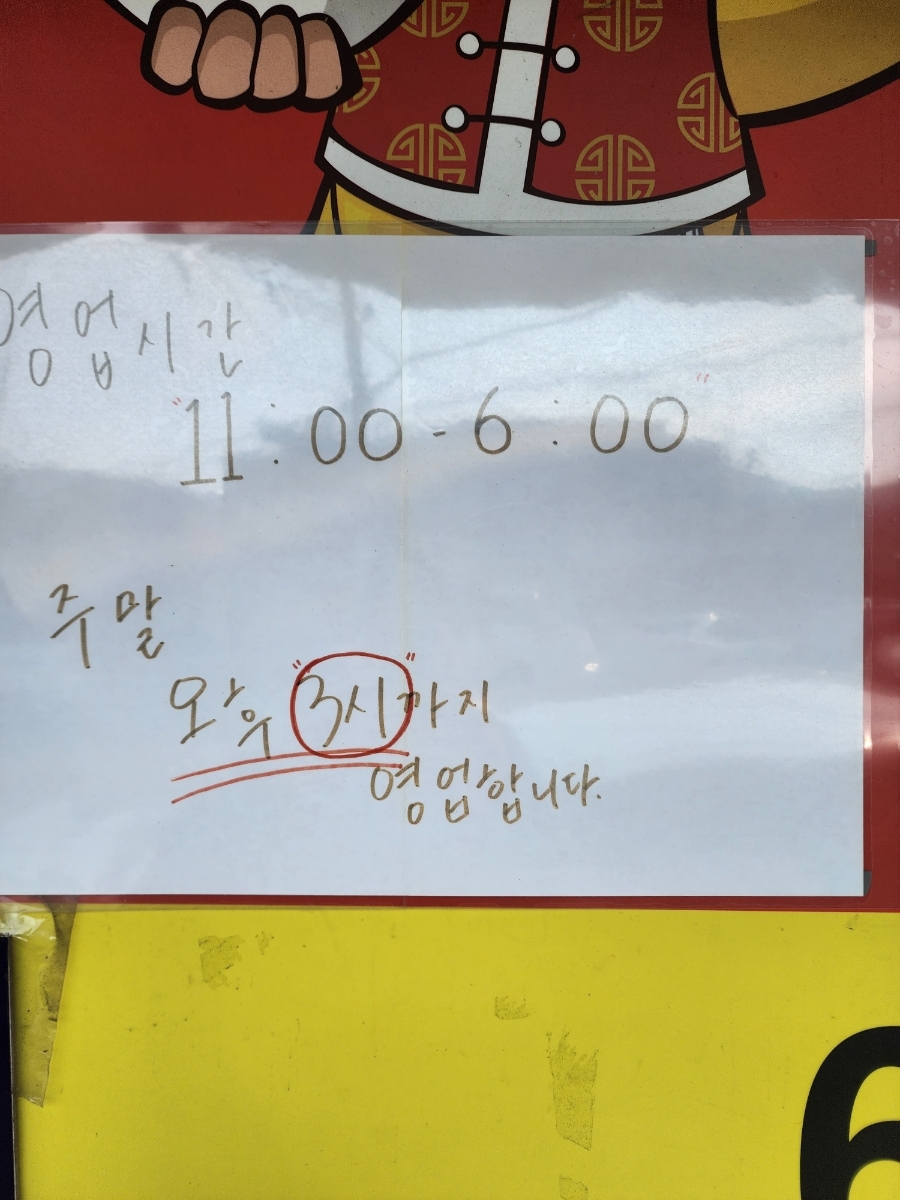 영업시간
"11:00-6:00"
주말
오후 "3시"까지
영업합니다.
6